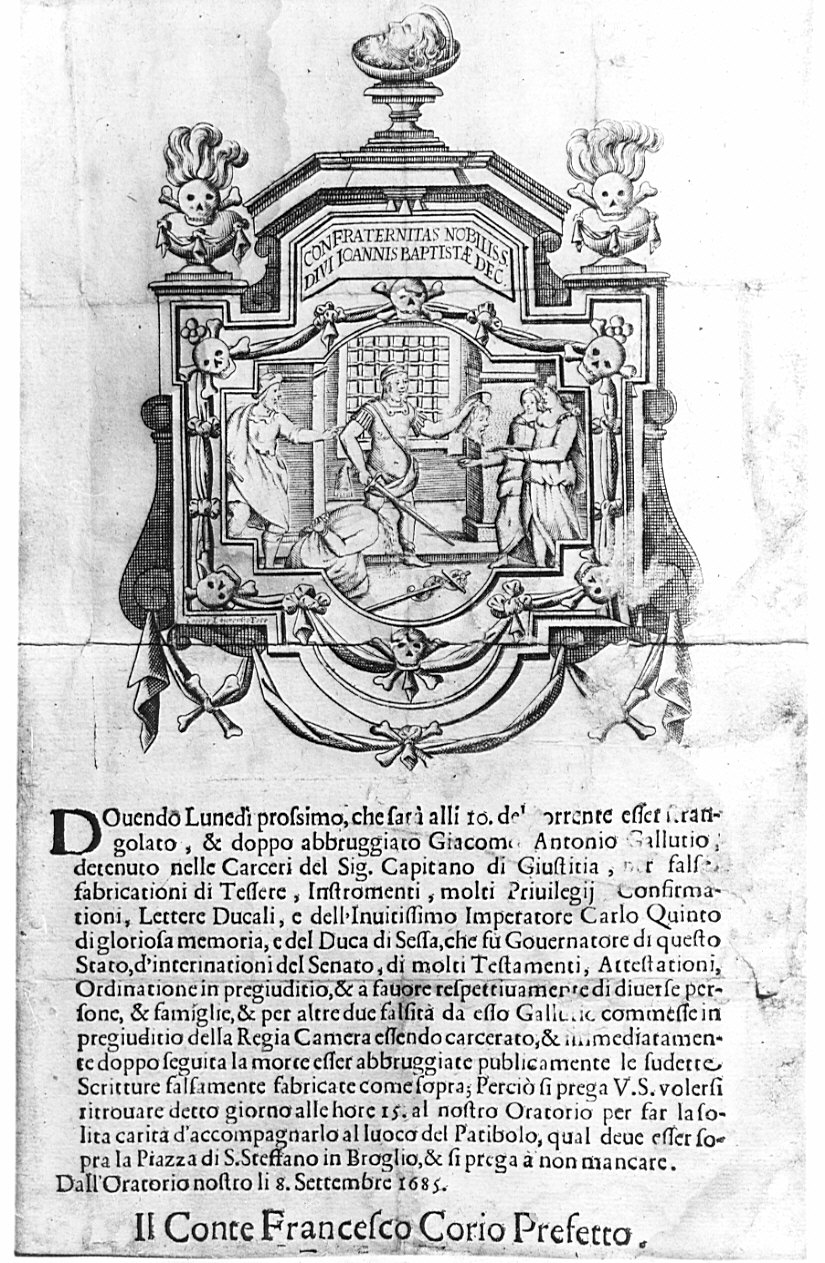 CONFRATERNITAS NOBILISS.
DIVI IOANNIS BAPTISTÆ DEC.
DOuendo Lunedì prossimo, che sarà alli 10. del corrente esser stran-
golato, & doppo abbruggiato Giacomo Antonio Gallutio,
detenuto nelle Carceri del Sig. Capitano di Giustitia, per false
fabricationi di Tessere, Instromenti, molti Priuilegij Confirma-
tioni, Lettere Ducali, e dell'Inuitissimo Imperatore Carlo Quinto
di gloriosa memoria, e del Duca di Sessa, che fù Gouernatore di questo
Stato, d'interinationi del Senato, di molti Testamenti, Attestationi,
Ordinatione in pregiuditio, & a fauore respettiuamente di diuerse per-
sone, & famiglie, & per altre due falsità da esso Gallutio commesse in
pregiuditio della Regia Camera essendo carcerato, & immediatamen-
te doppo seguita la morte esser abbruggiate publicamente le sudette
Scritture falsamente fabricate come sopra; Perciò si prega V.S. volersi
ritrouare detto giorno alle hore 15. al nostro Oratorio per far la so-
lita carità d'accompagnarlo al luoco del Patibolo, qual deue esser so-
pra la Piazza di S. Steffano in Broglio, & si prega à non mancare.
Dall'Oratorio nostro li 8. Settembre 1685.
Il Conte Francesco Corio Prefetto.